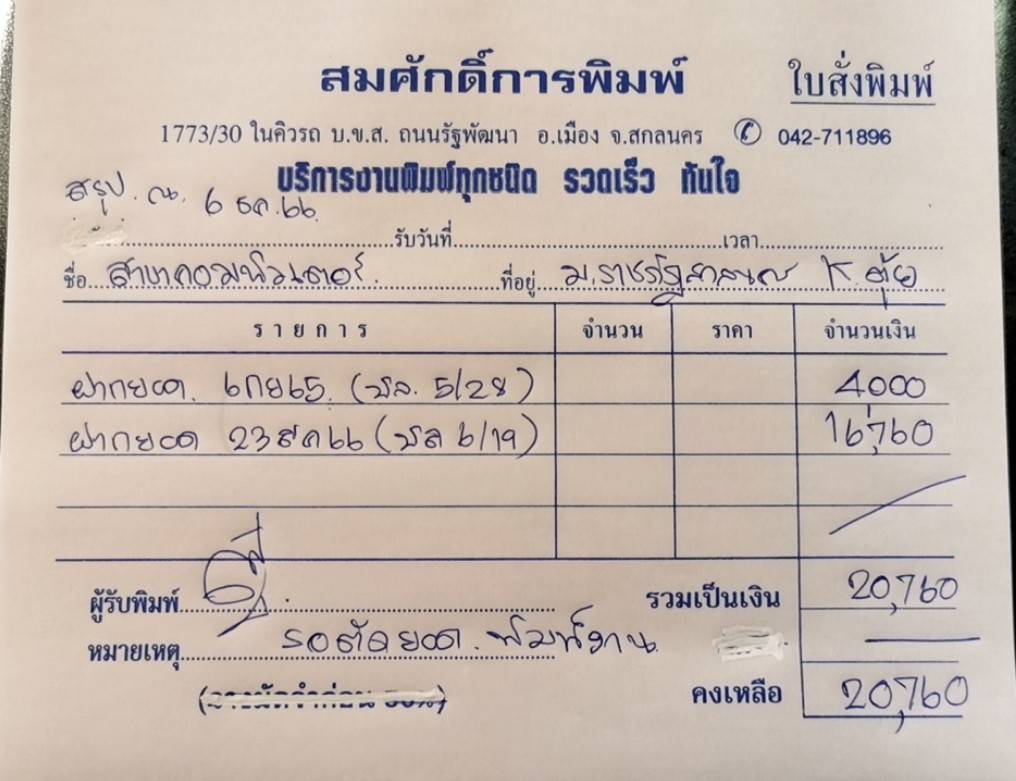 สมศักดิ์การพิมพ์ ใบสั่งพิมพ์
1773/30 ในคิวรถ บ.ข.ส. ถนนรัฐพัฒนา อ.เมือง จ.สกลนคร ✆ 042-711896
บริการงานพิมพ์ทุกชนิด รวดเร็ว ทันใจ
สรุป. ณ. 6 ธค.66
รับวันที่ เวลา
ชื่อ สาขาคอมพิวเตอร์. ที่อยู่ ม.ราชภัฏสกลนคร K.ตุ้ย
รายการ จำนวน ราคา จำนวนเงิน
ฝากยอด. 6กย65. (บล. 5/28) 4000
ฝากยอด 23สค66 (บล 6/19) 16,760
ผู้รับพิมพ์ รวมเป็นเงิน 20,760
หมายเหตุ รอตัดยอด. พิมพ์งาน
คงเหลือ 20,760